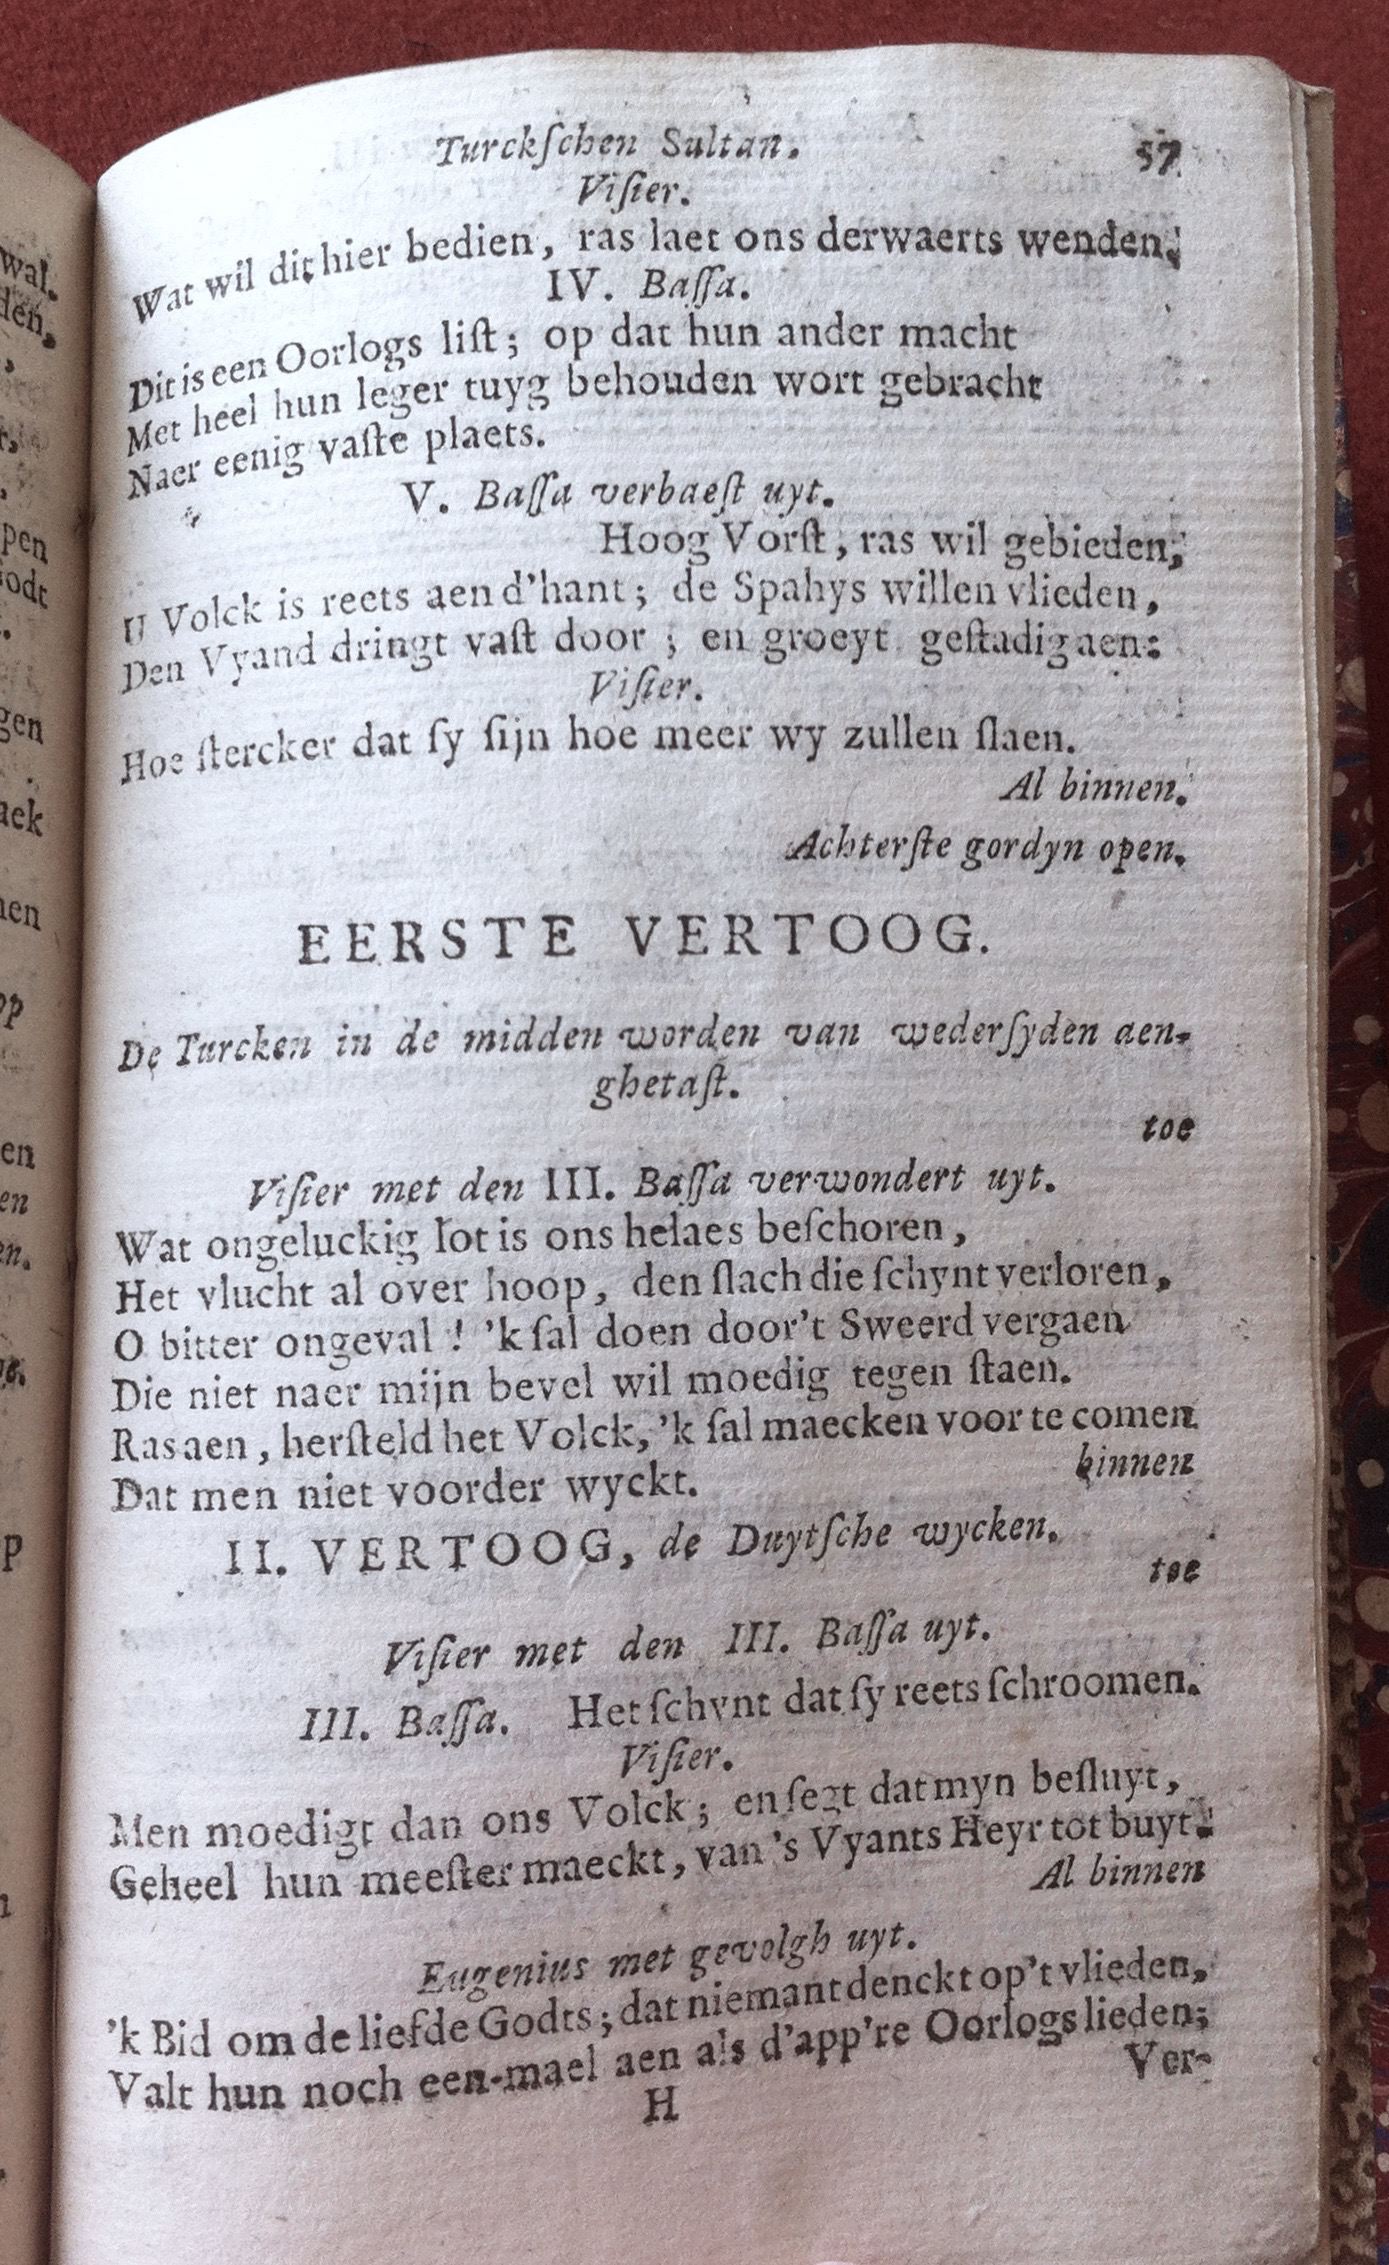 Turckſchen Sultan. 57
Viſier.
Wat wil dit hier bedien, ras laet ons derwaerts wenden.
IV. Baſſa.
Dit is een Oorlogs liſt; op dat hun ander macht
Met heel hun leger tuyg behouden wort gebracht
Naer eenig vaſte plaets.
V. Baſſa verbaeſt uyt.
Hoog Vorſt, ras wil gebieden,
U Volck is reets aen d'hant; de Spahys willen vlieden,
Den Vyand dringt vaſt door; en groeyt geſtadig aen:
Viſier.
Hoe ſtercker dat ſy ſijn hoe meer wy zullen ſlaen.
Al binnen.
Achterſte gordyn open.
EERSTE VERTOOG.
De Turcken in de midden worden van wederſyden aen-
ghetaſt.
toe
Viſier met den III. Baſſa verwondert uyt.
Wat ongeluckig lot is ons helaes beſchoren,
Het vlucht al over hoop, den ſlach die ſchynt verloren,
O bitter ongeval! 'k ſal doen door't Sweerd vergaen
Die niet naer mijn bevel wil moedig tegen ſtaen.
Ras aen, herſteld het Volck, 'k ſal maecken voor te comen
Dat men niet voorder wyckt.
binnen
II. VERTOOG, de Duytſche wycken.
toe
Viſier met den III. Baſſa uyt.
III. Baſſa. Het ſchynt dat ſy reets ſchroomen.
Viſier.
Men moedigt dan ons Volck; en ſegt dat myn beſluyt,
Geheel hun meeſter maeckt, van 's Vyants Heyr tot buyt.
Al binnen
Eugenius met gevolgh uyt.
'k Bid om de liefde Godts; dat niemant denckt op't vlieden,
Valt hun noch een-mael aen als d'app're Oorlogs lieden;
Ver-
H
wal.
den,
pen
Godt
gen
aek
en
en